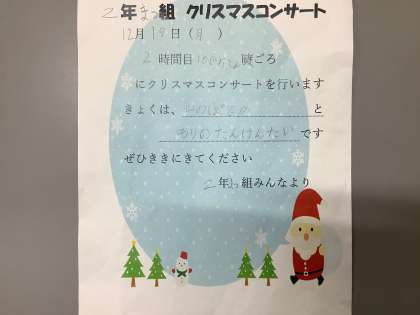 2年まつ組 クリスマスコンサート
12月19日(月)
2時間目 10じ 時ごろ
にクリスマスコンサートを行います
きょくは、 と
もりのたんけんたい です
ぜひききにきてください
2年 組みんなより